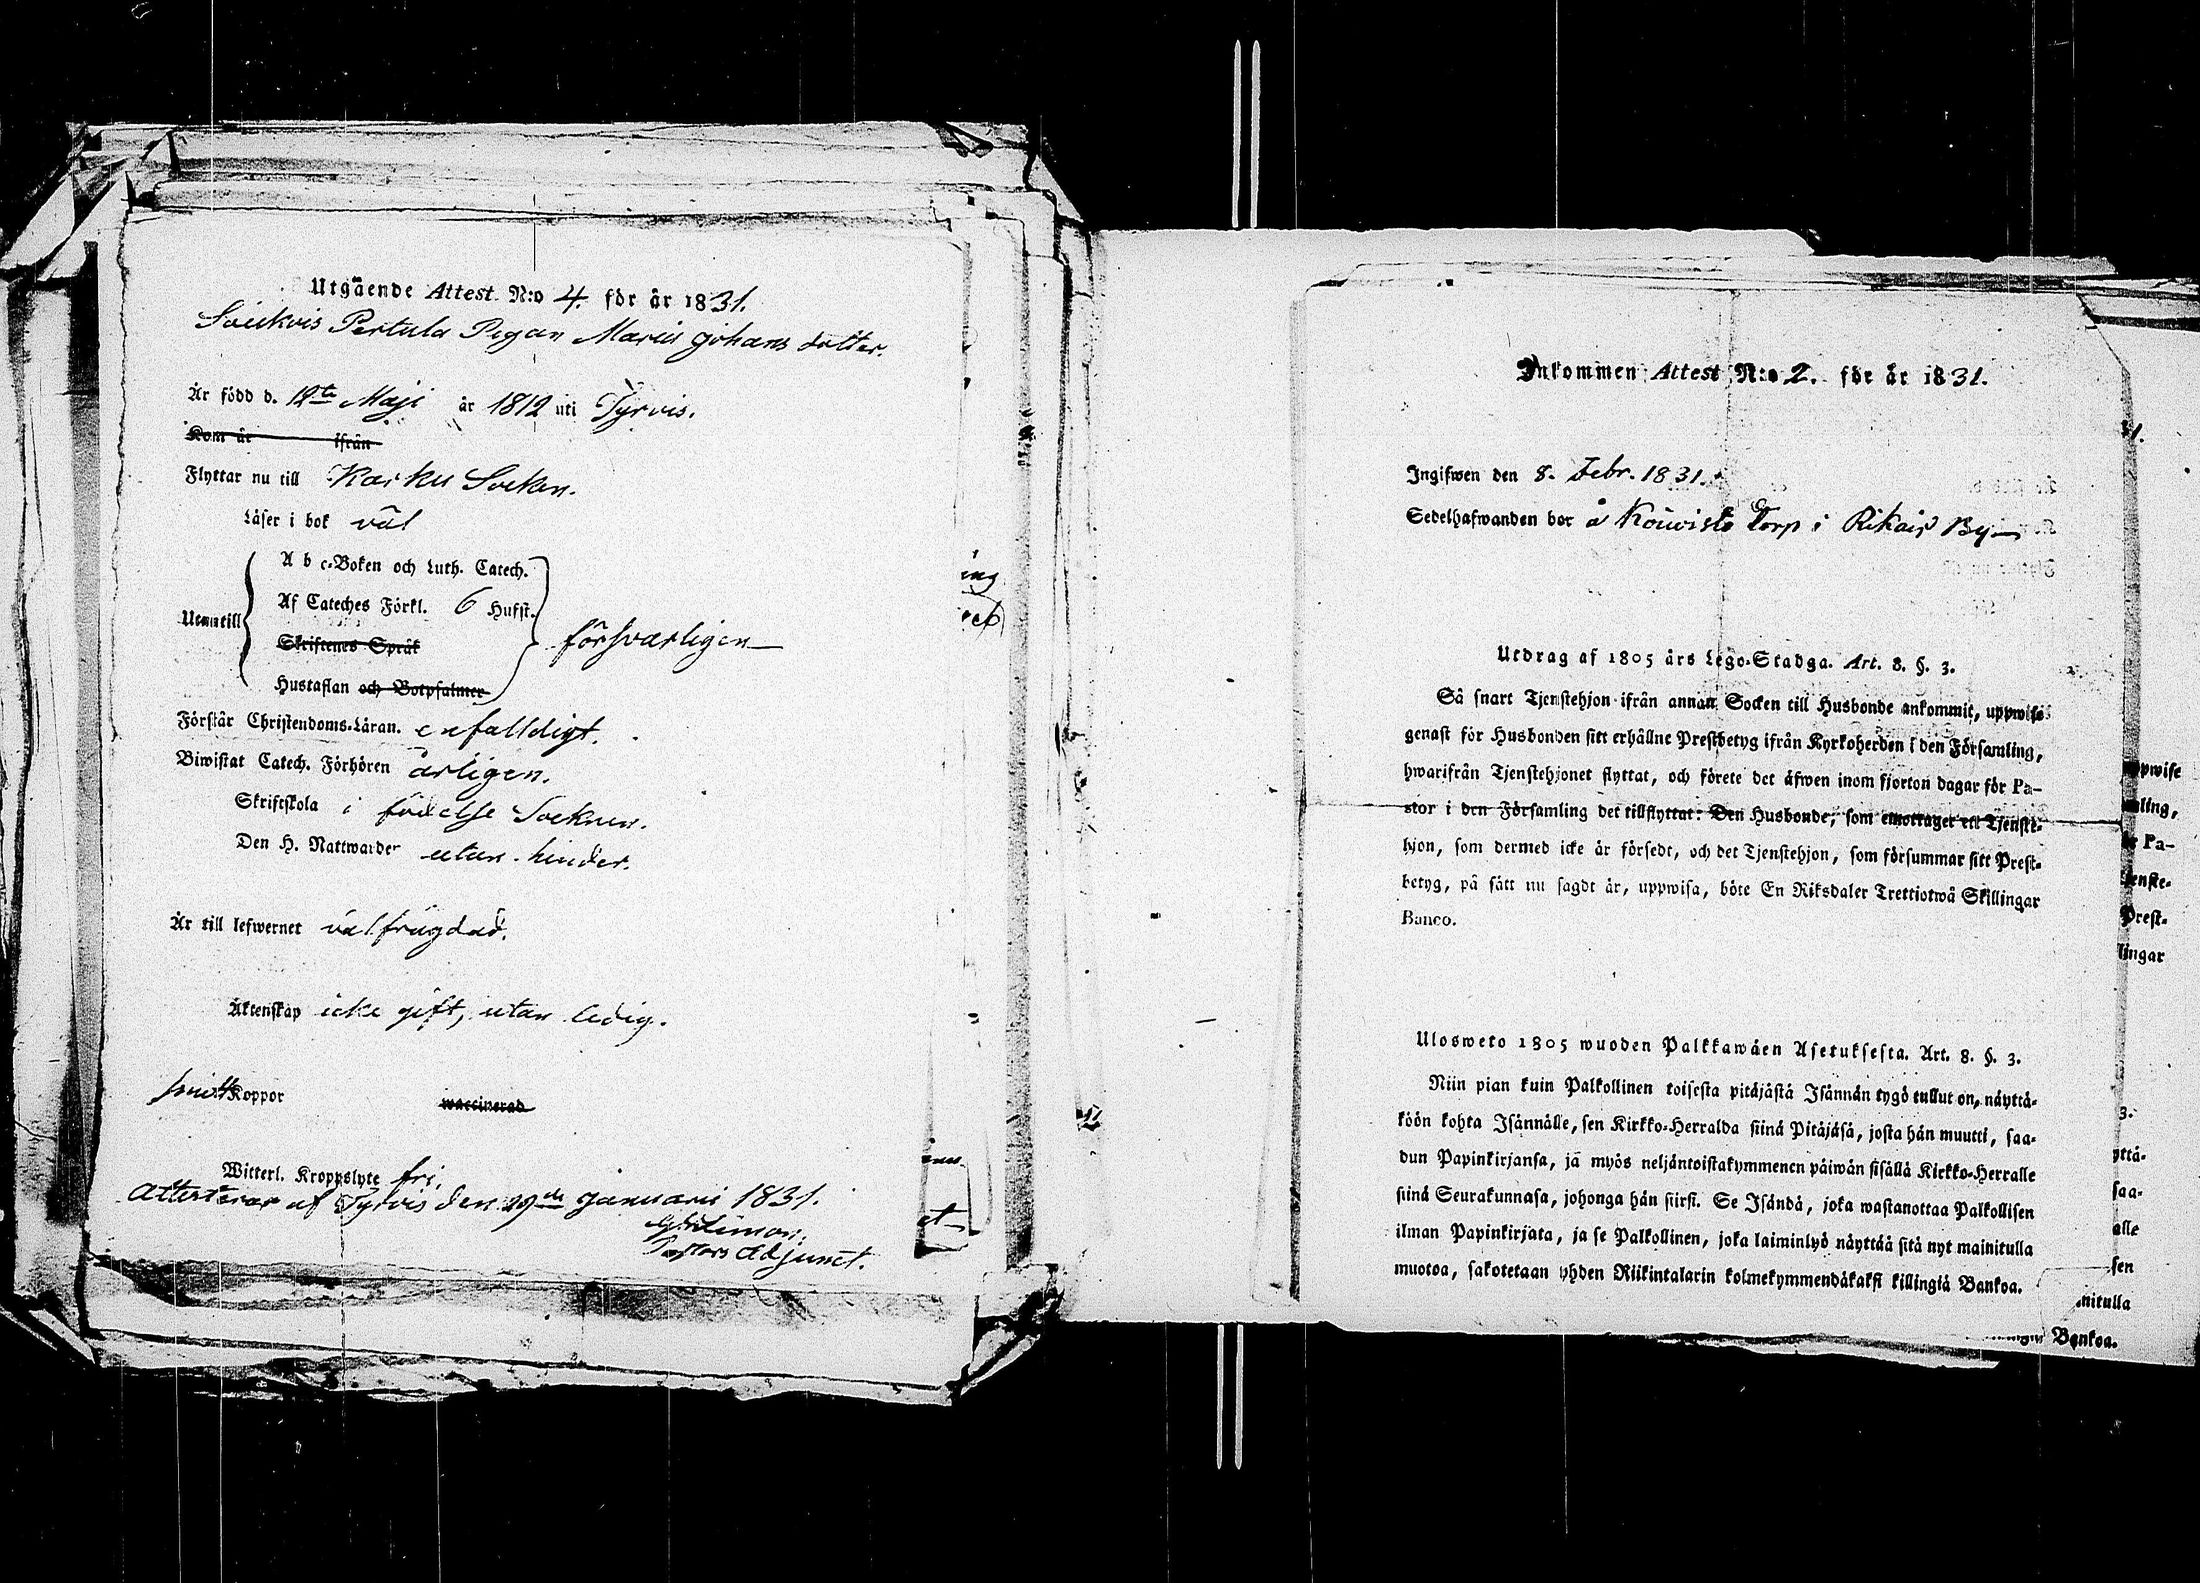 Utgående Attest N:o 4. för år 1831.
Soukvis Pertula Pigan Maria Johans dotter.
Är född d. 12te Maji år 1812 uti Tyrvis.
Kom år ifrån
Flyttar nu till Karku Socken.
Läser i bok väl
A b c-Boken och Luth. Catech.
Af Cateches Förkl. 6 Hufst.
Utantill försvarligen
Skriftenes Språk
Hustaflan och Botpsalmer
Förstår Christendoms-Läran. enfalldigt.
Biwistat Catech. Förhören årligen.
Skriftskola i födelse Socknen.
Den H. Nattward utan hinder.
Är till lefwernet välfrägdad.
Äktenskap icke gift, utan ledig.
Koppor waccinerad
Witterl. Kroppslyte fri.
Attesterar af Tyrvis den 29de Januarii 1831.
Pastors Adjunct.
Inkommen Attest N:o 2. för år 1831.
Ingifwen den 8. Febr. 1831.
Sedelhafwanden bor å Koivisto Torp i Rikais By
Utdrag af 1805 års Lego-Stadga. Art. 8. §. 3.
Så snart Tjenstehjon ifrån annan Socken till Husbonde ankommit, uppwise
genast för Husbonden sitt erhållne Prestbetyg ifrån Kyrkoherden i den Församling,
hwarifrån Tjenstehjonet flyttat, och förete det äfwen inom fjorton dagar för Pa-
stor i den Församling det tillflyttat: Den Husbonde, som emottager ett Tjenste-
hjon, som dermed icke är försedt, och det Tjenstehjon, som försummar sitt Prest-
betyg, på sätt nu sagdt är, uppwisa, böte En Riksdaler Trettiotwå Skillingar
Banco.
Ulosweto 1805 wuoden Palkkawäen Asetuksesta. Art. 8. §. 3.
Niin pian kuin Palkollinen toisesta pitäjästä Isännän tygö tullut on, näyttä-
köön kohta Isännälle, sen Kirkko-Herralda siinä Pitäjäsä, josta hän muutti, saa-
dun Papinkirjansa, ja myös neljäntoistakymmenen päiwän sisällä Kirkko-Herralle
siinä Seurakunnasa, johonga hän siirsi. Se Isändä, joka wastanottaa Palkollisen
ilman Papinkirjata, ja se Palkollinen, joka laiminlyö näyttää sitä nyt mainitulla
muotoa, sakotetaan yhden Riikintalarin kolmekymmendäkaksi killingiä Bankoa.